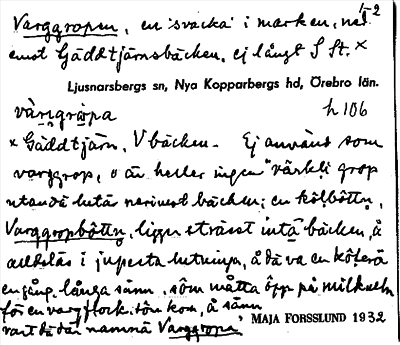 1-2
Varggropen, en 'svacka' i marken, när-
mst Gäddtjärnsbäcken, ej långt S. St. x
Ljusnarsbergs sn, Nya Kopparbergs hd, Örebro län.
h 106
x Gäddtjärn, V bäcken. - Ej använd som
varggrop, o är heller ingen "värkli grop
utan dä lutär nerimot bäcken; en kölböttn,
Varggropböttn, ligger strásst intä bäcken, å
alldeläs i jupesta lutninga, å dä va en kölerä
en gång, långa sänn, söm måtta öpp på milkulln
för en vargflock, söm kom, å sänn
vart dä där namnä Varggropa'
MAJA FORSSLUND 1932